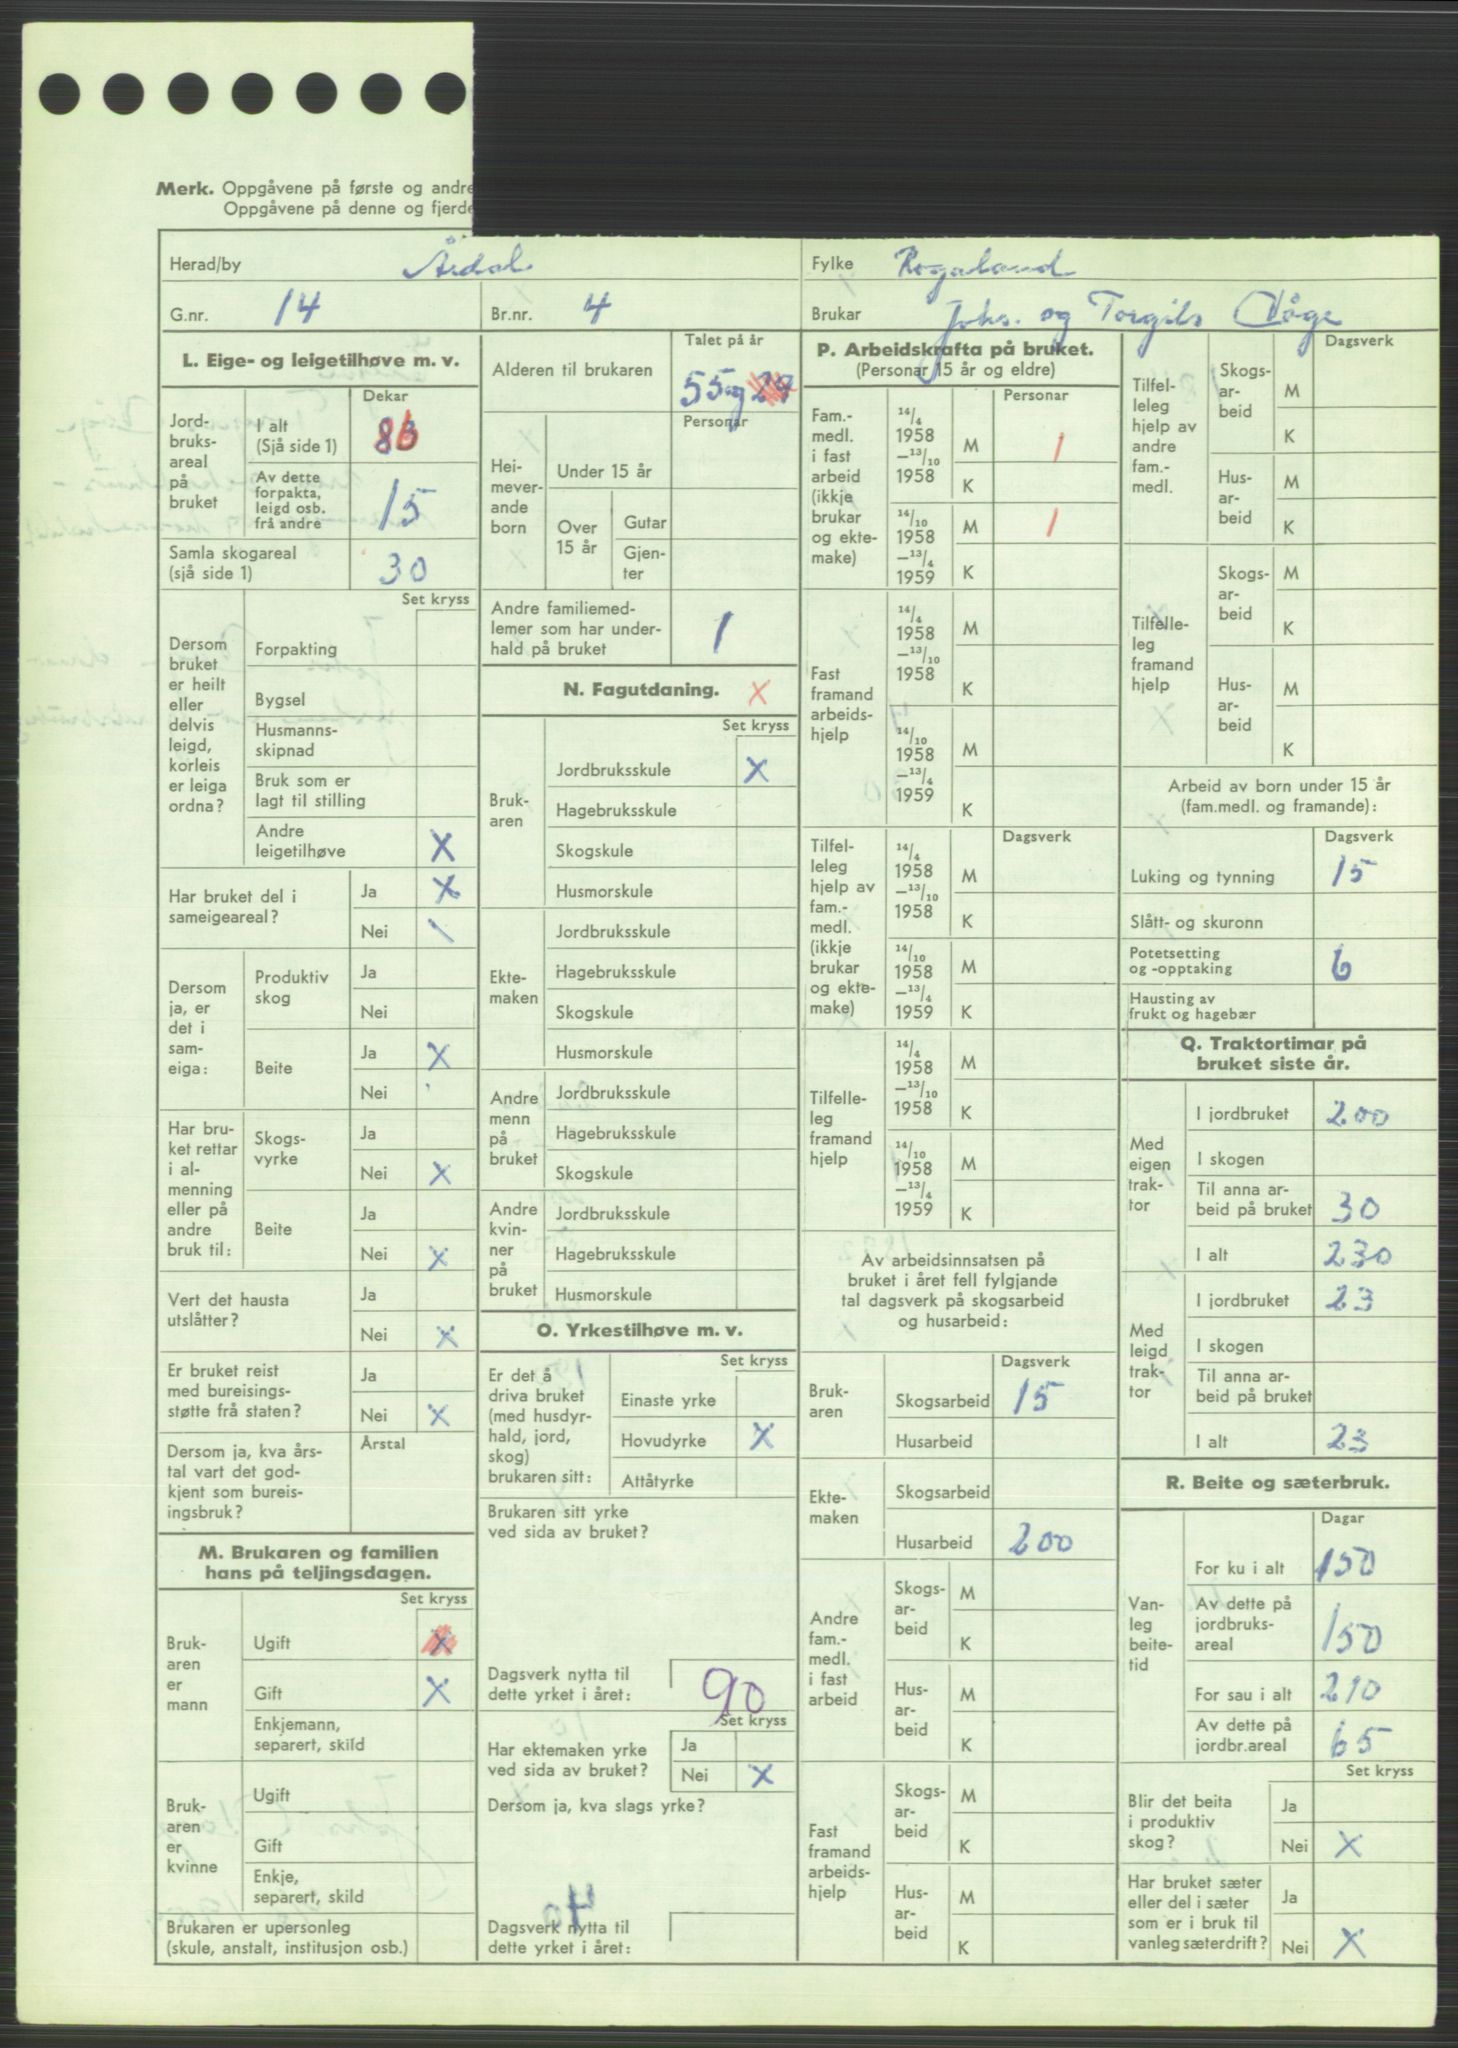 Merk. Oppgåvene på første og andre
Oppgåvene på denne og fjerde
Herad/by Årdal
Fylke Rogaland
G.nr. 14
Br.nr. 4
Brukar Johs. og Torgils
L. Eige- og leigetilhøve m. v.
Dekar
Jord-
bruks-
areal
på
bruket
I alt
(Sjå side 1)
Av dette
forpakta,
leigd osb.
frå andre
15
Samla skogareal
(sjå side 1)
30
Set kryss
Dersom
bruket
er heilt
eller
delvis
leigd,
korleis
er leiga
ordna?
Forpakting
Bygsel
Husmanns-
skipnad
Bruk som er
lagt til stilling
Andre
leigetilhøve X
Har bruket del i
sameigeareal?
Ja X
Nei
Dersom
ja, er
det i
sam-
eiga:
Produktiv
skog
Ja
Nei
Beite
Ja X
Nei
Har bru-
ket rettar
i al-
menning
eller på
andre
bruk til:
Skogs-
vyrke
Ja
Nei X
Beite
Ja
Nei X
Vert det hausta
utslåtter?
Ja
Nei X
Er bruket reist
med bureisings-
støtte frå staten?
Ja
Nei X
Dersom ja, kva års-
tal vart det god-
kjent som bureis-
ingsbruk?
Årstal
M. Brukaren og familien
hans på teljingsdagen.
Set kryss
Bruk-
aren
er
mann
Ugift X
Gift X
Enkjemann,
separert, skild
Bruk-
aren
er
kvinne
Ugift
Gift
Enkje,
separert, skild
Brukaren er upersonleg
(skule, anstalt, institusjon osb.)
Talet på år
Alderen til brukaren 55 og 24
Personar
Hei-
mever-
ande
born
Under 15 år
Over
15 år
Gutar
Gjen-
ter
Andre familiemed-
lemer som har under-
hald på bruket
1
N. Fagutdaning. X
Set kryss
Bruk-
aren
Jordbruksskule X
Hagebruksskule
Skogskule
Husmorskule
Ekte-
maken
Jordbruksskule
Hagebruksskule
Skogskule
Husmorskule
Andre
menn
på
bruket
Jordbruksskule
Hagebruksskule
Skogskule
Andre
kvin-
ner
på
bruket
Jordbruksskule
Hagebruksskule
Husmorskule
O. Yrkestilhøve m. v.
Set kryss
Er det å
driva bruket
(med husdyr-
hald, jord,
skog)
brukaren sitt:
Einaste yrke
Hovudyrke X
Attåtyrke
Brukaren sitt yrke
ved sida av bruket?
Dagsverk nytta til
dette yrket i året: 90
Set kryss
Har ektemaken yrke
ved sida av bruket?
Ja
Nei X
Dersom ja, kva slags yrke?
Dagsverk nytta til
dette yrket i året:
P. Arbeidskrafta på bruket.
(Personar 15 år og eldre)
Personar
Fam.-
medl.
i fast
arbeid
(ikkje
brukar
og ekte-
make)
14/4
1958
—13/10
1958
M 1
K
14/10
1958
—13/4
1959
M 1
K
Fast
framand
arbeids-
hjelp
14/4
1958
—13/10
1958
M
K
14/10
1958
—13/4
1959
M
K
Dagsverk
Tilfel-
leleg
hjelp av
fam.-
medl.
(ikkje
brukar
og ekte-
make)
14/4
1958
—13/10
1958
M
K
14/10
1958
—13/4
1959
M
K
Tilfelle-
leg
framand
hjelp
14/4
1958
—13/10
1958
M
K
14/10
1958
—13/4
1959
M
K
Av arbeidsinnsatsen på
bruket i året fell fylgjande
tal dagsverk på skogsarbeid
og husarbeid:
Dagsverk
Bruk-
aren
Skogsarbeid 15
Husarbeid
Ekte-
maken
Skogsarbeid
Husarbeid 200
Andre
fam.-
medl.
i fast
arbeid
Skogs-
ar-
beid
M
K
Hus-
ar-
beid
M
K
Fast
framand
arbeids-
hjelp
Skogs-
ar-
beid
M
K
Hus-
ar-
beid
M
K
Dagsverk
Tilfel-
leleg
hjelp av
andre
fam.-
medl.
Skogs-
ar-
beid
M
K
Hus-
ar-
beid
M
K
Tilfelle-
leg
framand
hjelp
Skogs-
ar-
beid
M
K
Hus-
ar-
beid
M
K
Arbeid av born under 15 år
(fam.medl. og framande):
Dagsverk
Luking og tynning 15
Slått- og skuronn
Potetsetting
og -opptaking 6
Hausting av
frukt og hagebær
Q. Traktortimar på
bruket siste år.
Med
eigen
trak-
tor
I jordbruket 200
I skogen
Til anna ar-
beid på bruket 30
I alt 230
Med
leigd
trak-
tor
I jordbruket 23
I skogen
Til anna ar-
beid på bruket
I alt 23
R. Beite og sæterbruk.
Dagar
Van-
leg
beite-
tid
For ku i alt 150
Av dette på
jordbruks-
areal 150
For sau i alt 210
Av dette på
jordbr.areal 65
Set kryss
Blir det beita
i produktiv
skog?
Ja
Nei X
Har bruket sæter
eller del i sæter
som er i bruk til
vanleg sæterdrift?
Ja
Nei X